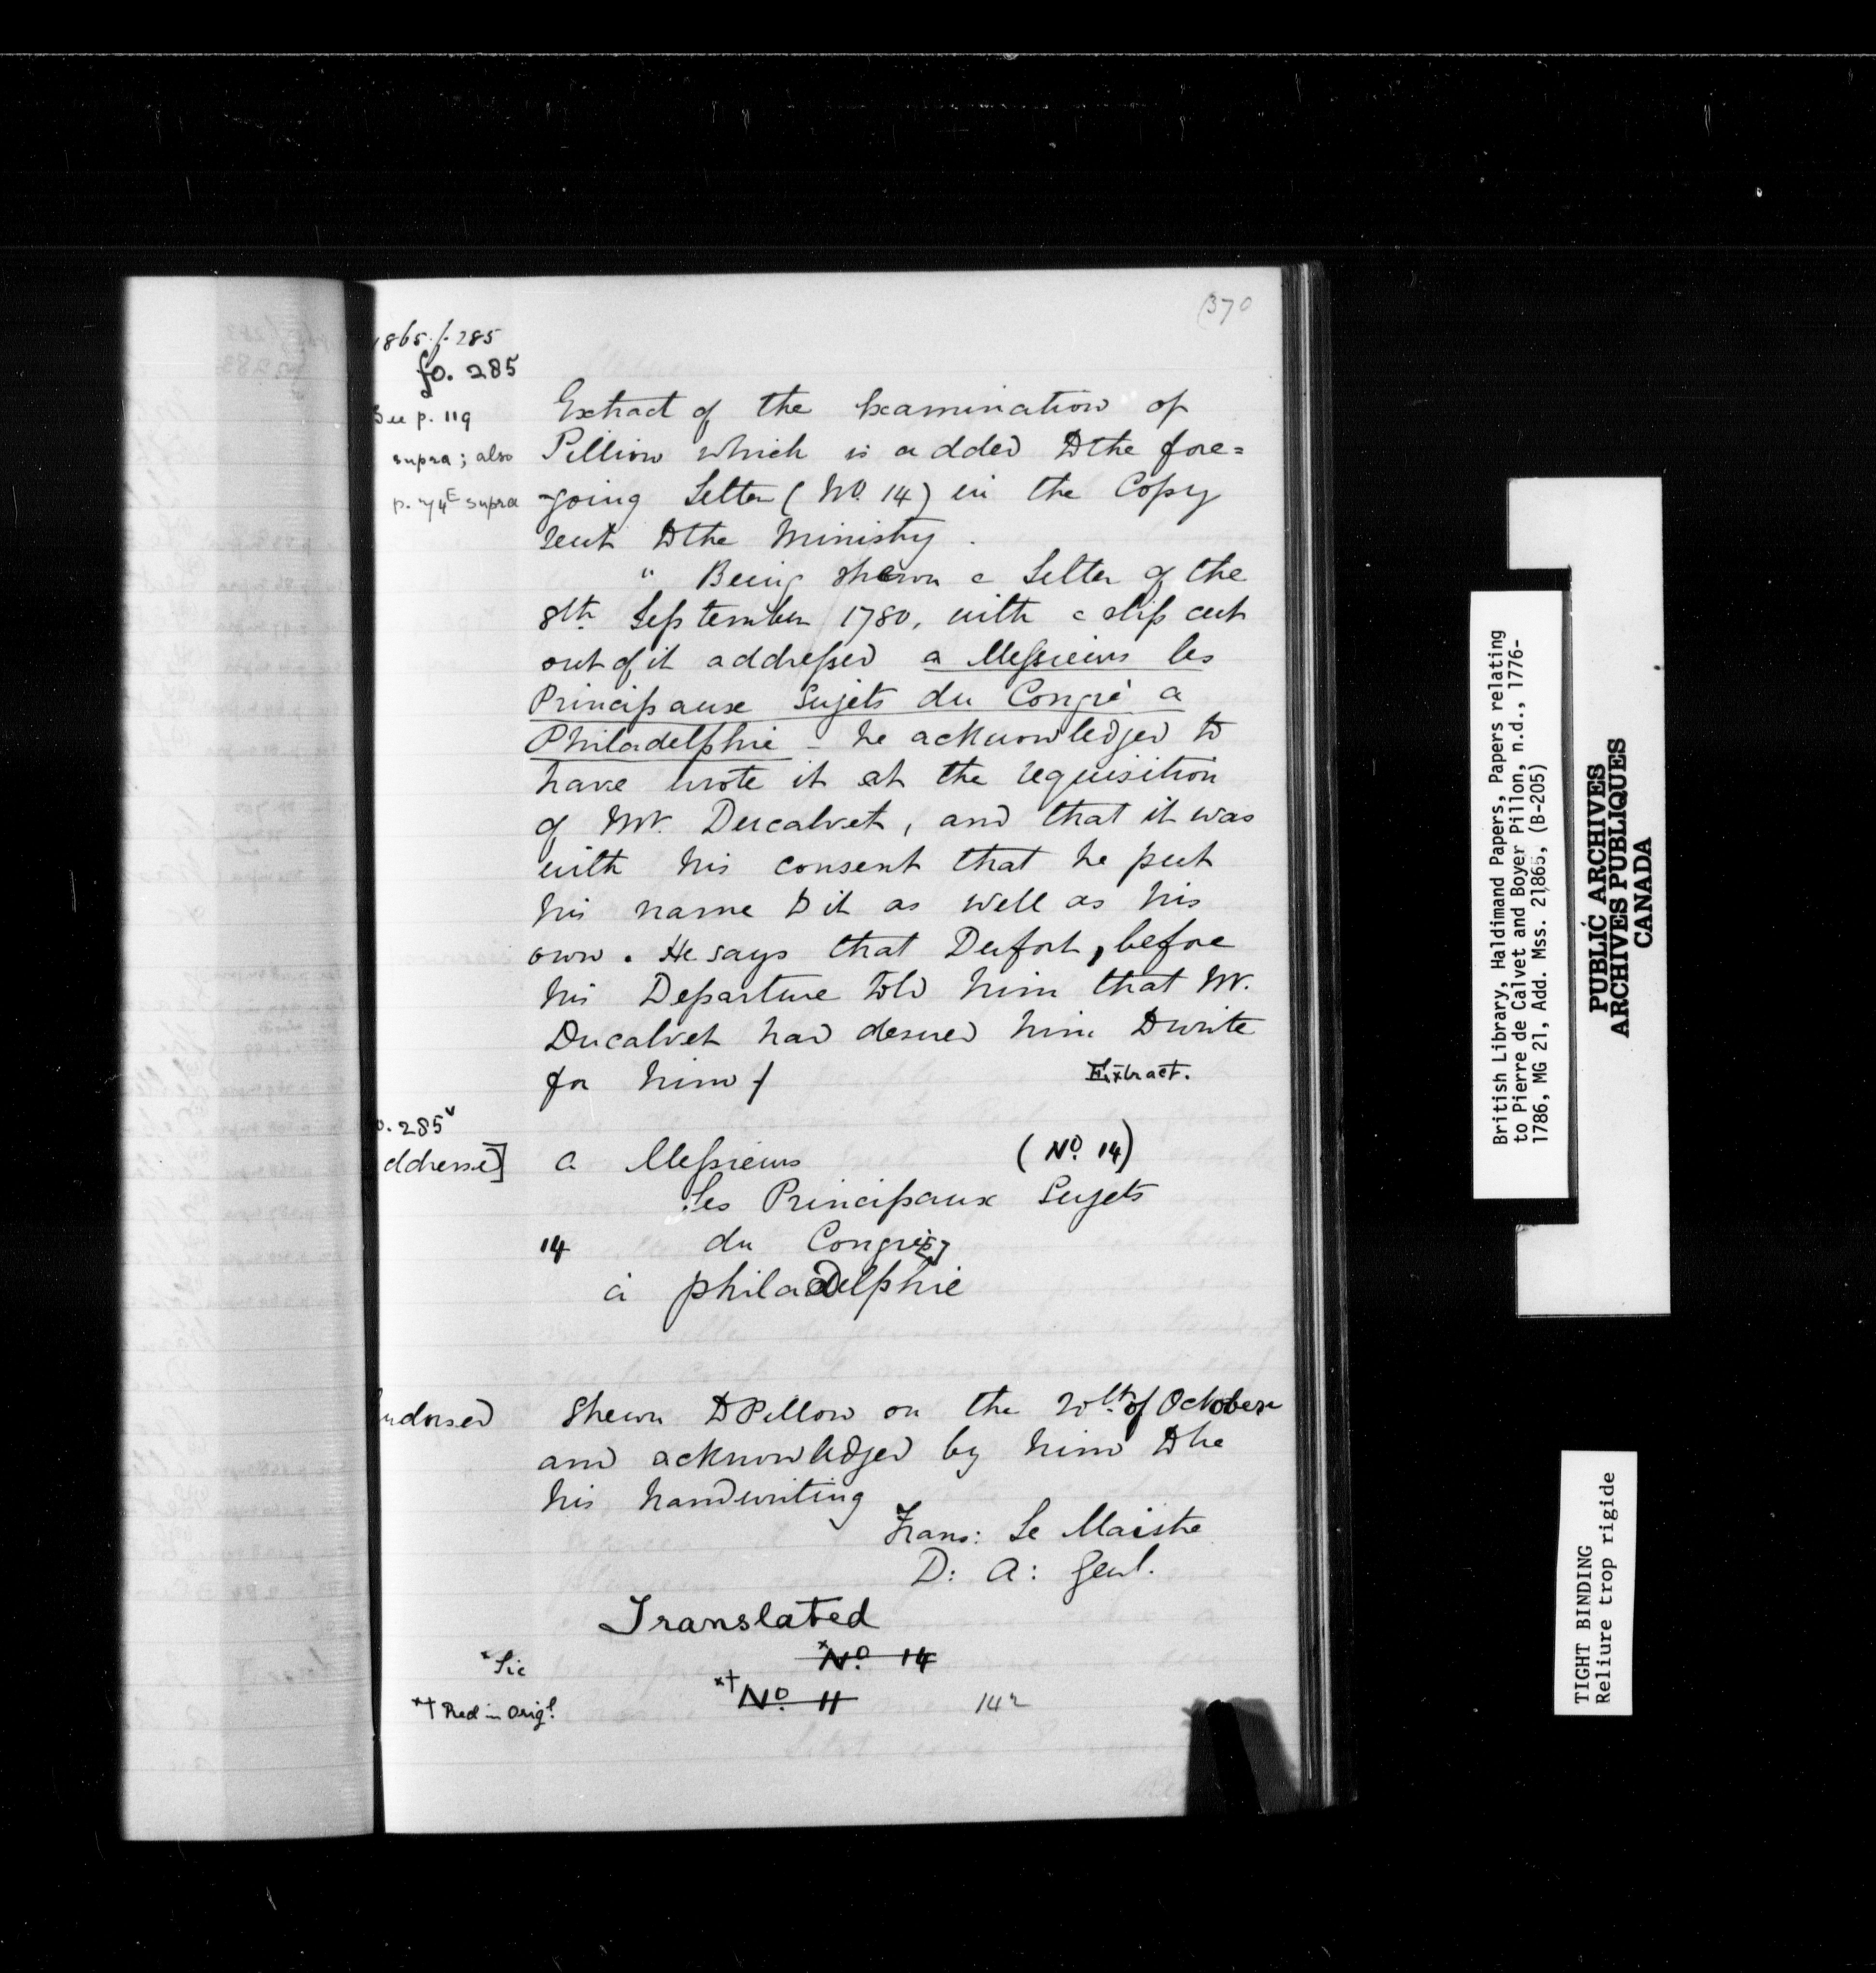 370
1865. f. 285
fo. 285
See p. 119
supra; also
p. 74E supra
Extract of the Examination of
Pillion which is added to the fore=
-going Letter (No. 14) in the Copy
sent to the Ministry.
" Being shewn a Letter of the
8th September 1780, with a slip cut
out of it addressed a Messieurs les
Principaux Sujets du Congré a
Philadelphie - he acknowledged to
have wrote it at the requisition
of Mr. Ducalvet, and that it was
with his consent that he put
his name to it as well as his
own. He says that Dufort, before
his Departure told him that Mr.
Ducalvet had desired him to write
for him
Extract.
o. 285v
ddressed]
a Messieurs (No. 14)
Les Principaux Sujets
14 du Congrè[s]
à philadelphie
ndorsed
Shewn to Pillon on the 20th of October
and acknowledged by him to be
his handwriting
Frans: Le Maistre
D: A: Genl.
Translated
*No. 14
*Sic
*†No. 11
*† Red in Origl.
142
British Library, Haldimand Papers, Papers relating
to Pierre de Calvet and Boyer Pillon, n.d., 1776-
1786, MG 21, Add. Mss. 21865, (B-205)
PUBLIC ARCHIVES
ARCHIVES PUBLIQUES
CANADA
TIGHT BINDING
Reliure trop rigide